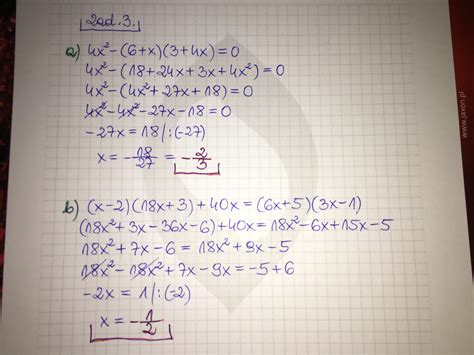 Zad. 3.
a) 4x²-(6+x)(3+4x)=0
4x²-(18+24x+3x+4x²)=0
4x²-(4x²+27x+18)=0
4x²-4x²-27x-18=0
-27x=18 |:(-27)
x=-18/27=-2/3
b) (x-2)(18x+3)+40x=(6x+5)(3x-1)
(18x²+3x-36x-6)+40x=18x²-6x+15x-5
18x²+7x-6=18x²+9x-5
18x²-18x²+7x-9x=-5+6
-2x=1 |:(-2)
x=-1/2
www.jaxon.pl